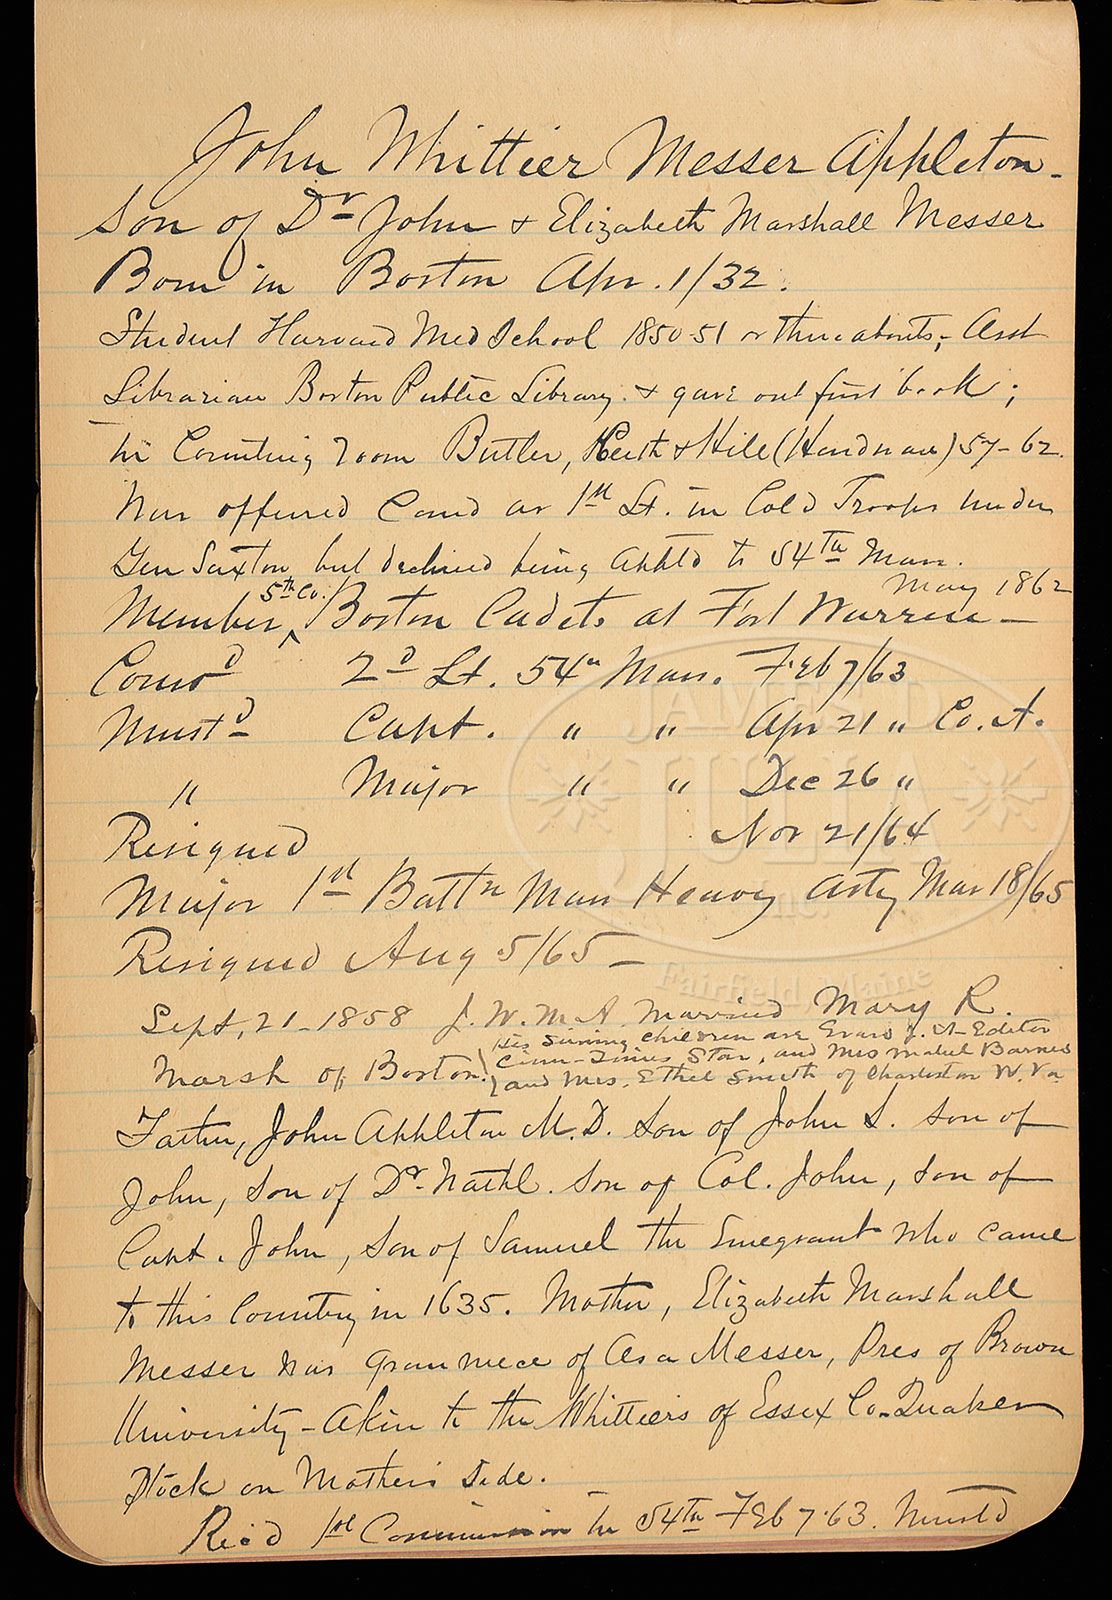 John Whittier Messer Appleton.
Son of Dr John & Elizabeth Marshall Messer
Born in Boston Apr. 1/32.
Student Harvard Med School 1850-51 or thereabouts; Asst
Librarian Boston Public Library. & gave out first book;
In Counting room Butler, Keith & Hill (Hardware) 57-62.
Was offered Comd as 1st Lt. in Cold Troops under
Gen Saxton but declined being apptd to 54th Mass.
Member 5th Co. Boston Cadets at Fort Warren - May 1862
Comsd 2d Lt. 54th Mass. Feb 7/63
Mustd Capt. " " Apr 21 " Co. A.
" Major " " Dec 26 "
Resigned Nov 21/64
Major 1st Battn Mass Heavy Arty Mar 18/65
Resigned Aug 5/65 -
Sept, 21-1858 J. W. M. A. married Mary R.
Marsh of Boston.
His surviving children are Evans J. A- Editor
Cinn- Times Star, and Mrs Mabel Barnes
and Mrs. Ethel Smith of Charleston W. Va.
Father, John Appleton M.D. Son of John S. son of
John, son of Dr. Nathl. son of Col. John, son of
Capt. John, son of Samuel the Emegrant who came
to this Country in 1635. Mother, Elizabeth Marshall
Messer was gran niece of Asa Messer, Pres of Brown
University - Akin to the Whittiers of Essex Co. Quaker
Stock on Mothers side.
Rec'd 1st Commission in 54th Feb 7.63. Mustd
JAMES D.
JULIA
Inc.
Fairfield, Maine